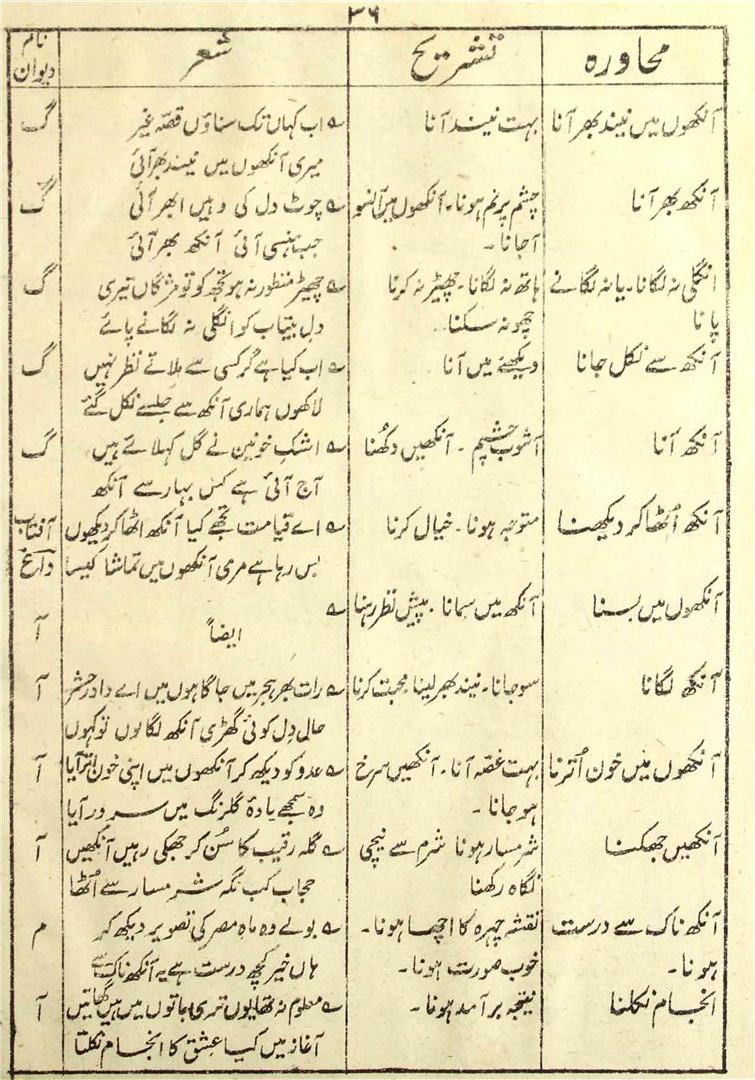 ۳۶
محاورہ تشریح شعر نام دیوان
آنکھوں میں نیند بھر آنا بہت نیند آنا ؎ اب کہاں تک سناؤں قصّۂ غیر گ
میری آنکھوں میں نیند بھر آئی
آنکھ بھر آنا چشم پرنم ہونا۔ آنکھوں میں آنسو ؎ چوٹ دل کی وہیں ابھر آئی گ
آجانا۔ جب ہنسی آئی آنکھ بھر آئی
انگلی نہ لگانا۔ یا نہ لگانے ہاتھ نہ لگانا۔ چھیڑ نہ کرنا ؎ چھیڑ منظور نہ ہو تجھ کو تو مژگاں تیری گ
پانا چھو نہ سکنا۔ دل بیتاب کو انگلی نہ لگانے پائے
آنکھ سے نکل جانا دیکھنے میں آنا ؎ اب کیا ہے گر کسی سے ہلاتے نظر نہیں گ
لاکھوں ہماری آنکھ سے جلسے نکل گئے
آنکھ آنا آشوب چشم۔ آنکھیں دکھنا ؎ اشک خونین نے گل کہلائے ہیں گ
آج آئی ہے کس بہار سے آنکھ
آنکھ اُٹھا کر دیکھنا متوجہ ہونا۔ خیال کرنا ؎ اے قیامت تجھے کیا آنکھ اٹھا کر دیکھوں آفتاب
بس رہا ہے مری آنکھوں میں تماشا کیسا داغ
آنکھوں میں بسنا آنکھ میں سمانا۔ پیش نظر رہنا ؎
ایضاً آ
آنکھ لگانا سوجانا۔ نیند بھر لینا محبت کرنا ؎ رات بھر ہجر میں جاگا ہوں میں اے داور حشر آ
حالی دل کوئی گھڑی آنکھ لگالوں تو کہوں
آنکھوں میں خون اُترنا بہت غصّہ آنا۔ آنکھیں سرخ ؎ عدو کو دیکھ کر آنکھوں میں اپنی خون اتر آیا آ
ہوجانا۔ وہ سمجھے بادۂ گلرنگ میں سرور آیا
آنکھیں جھکنا شرمسار ہونا شرم سے نیچی ؎ گلہ رقیب کا سُن کر جھکی رہیں آنکھیں آ
نگاہ رکھنا حجاب کب نگہ شرمسار سے اُٹھا
آنکھ ناک سے درست نقشہ چہرہ کا اچھا ہونا۔ ؎ بولے وہ ماہ مصر کی تصویر دیکھ کر م
ہونا۔ خوب صورت ہونا۔ ہاں خیر کچھ درست ہے یہ آنکھ ناک سے
انجام نکلنا نتیجہ برآمد ہونا۔ ؎ معلوم نہ تھا یوں تری باتوں میں ہیں گھاتیں آ
آغاز میں کیا عشق کا انجام نکلتا